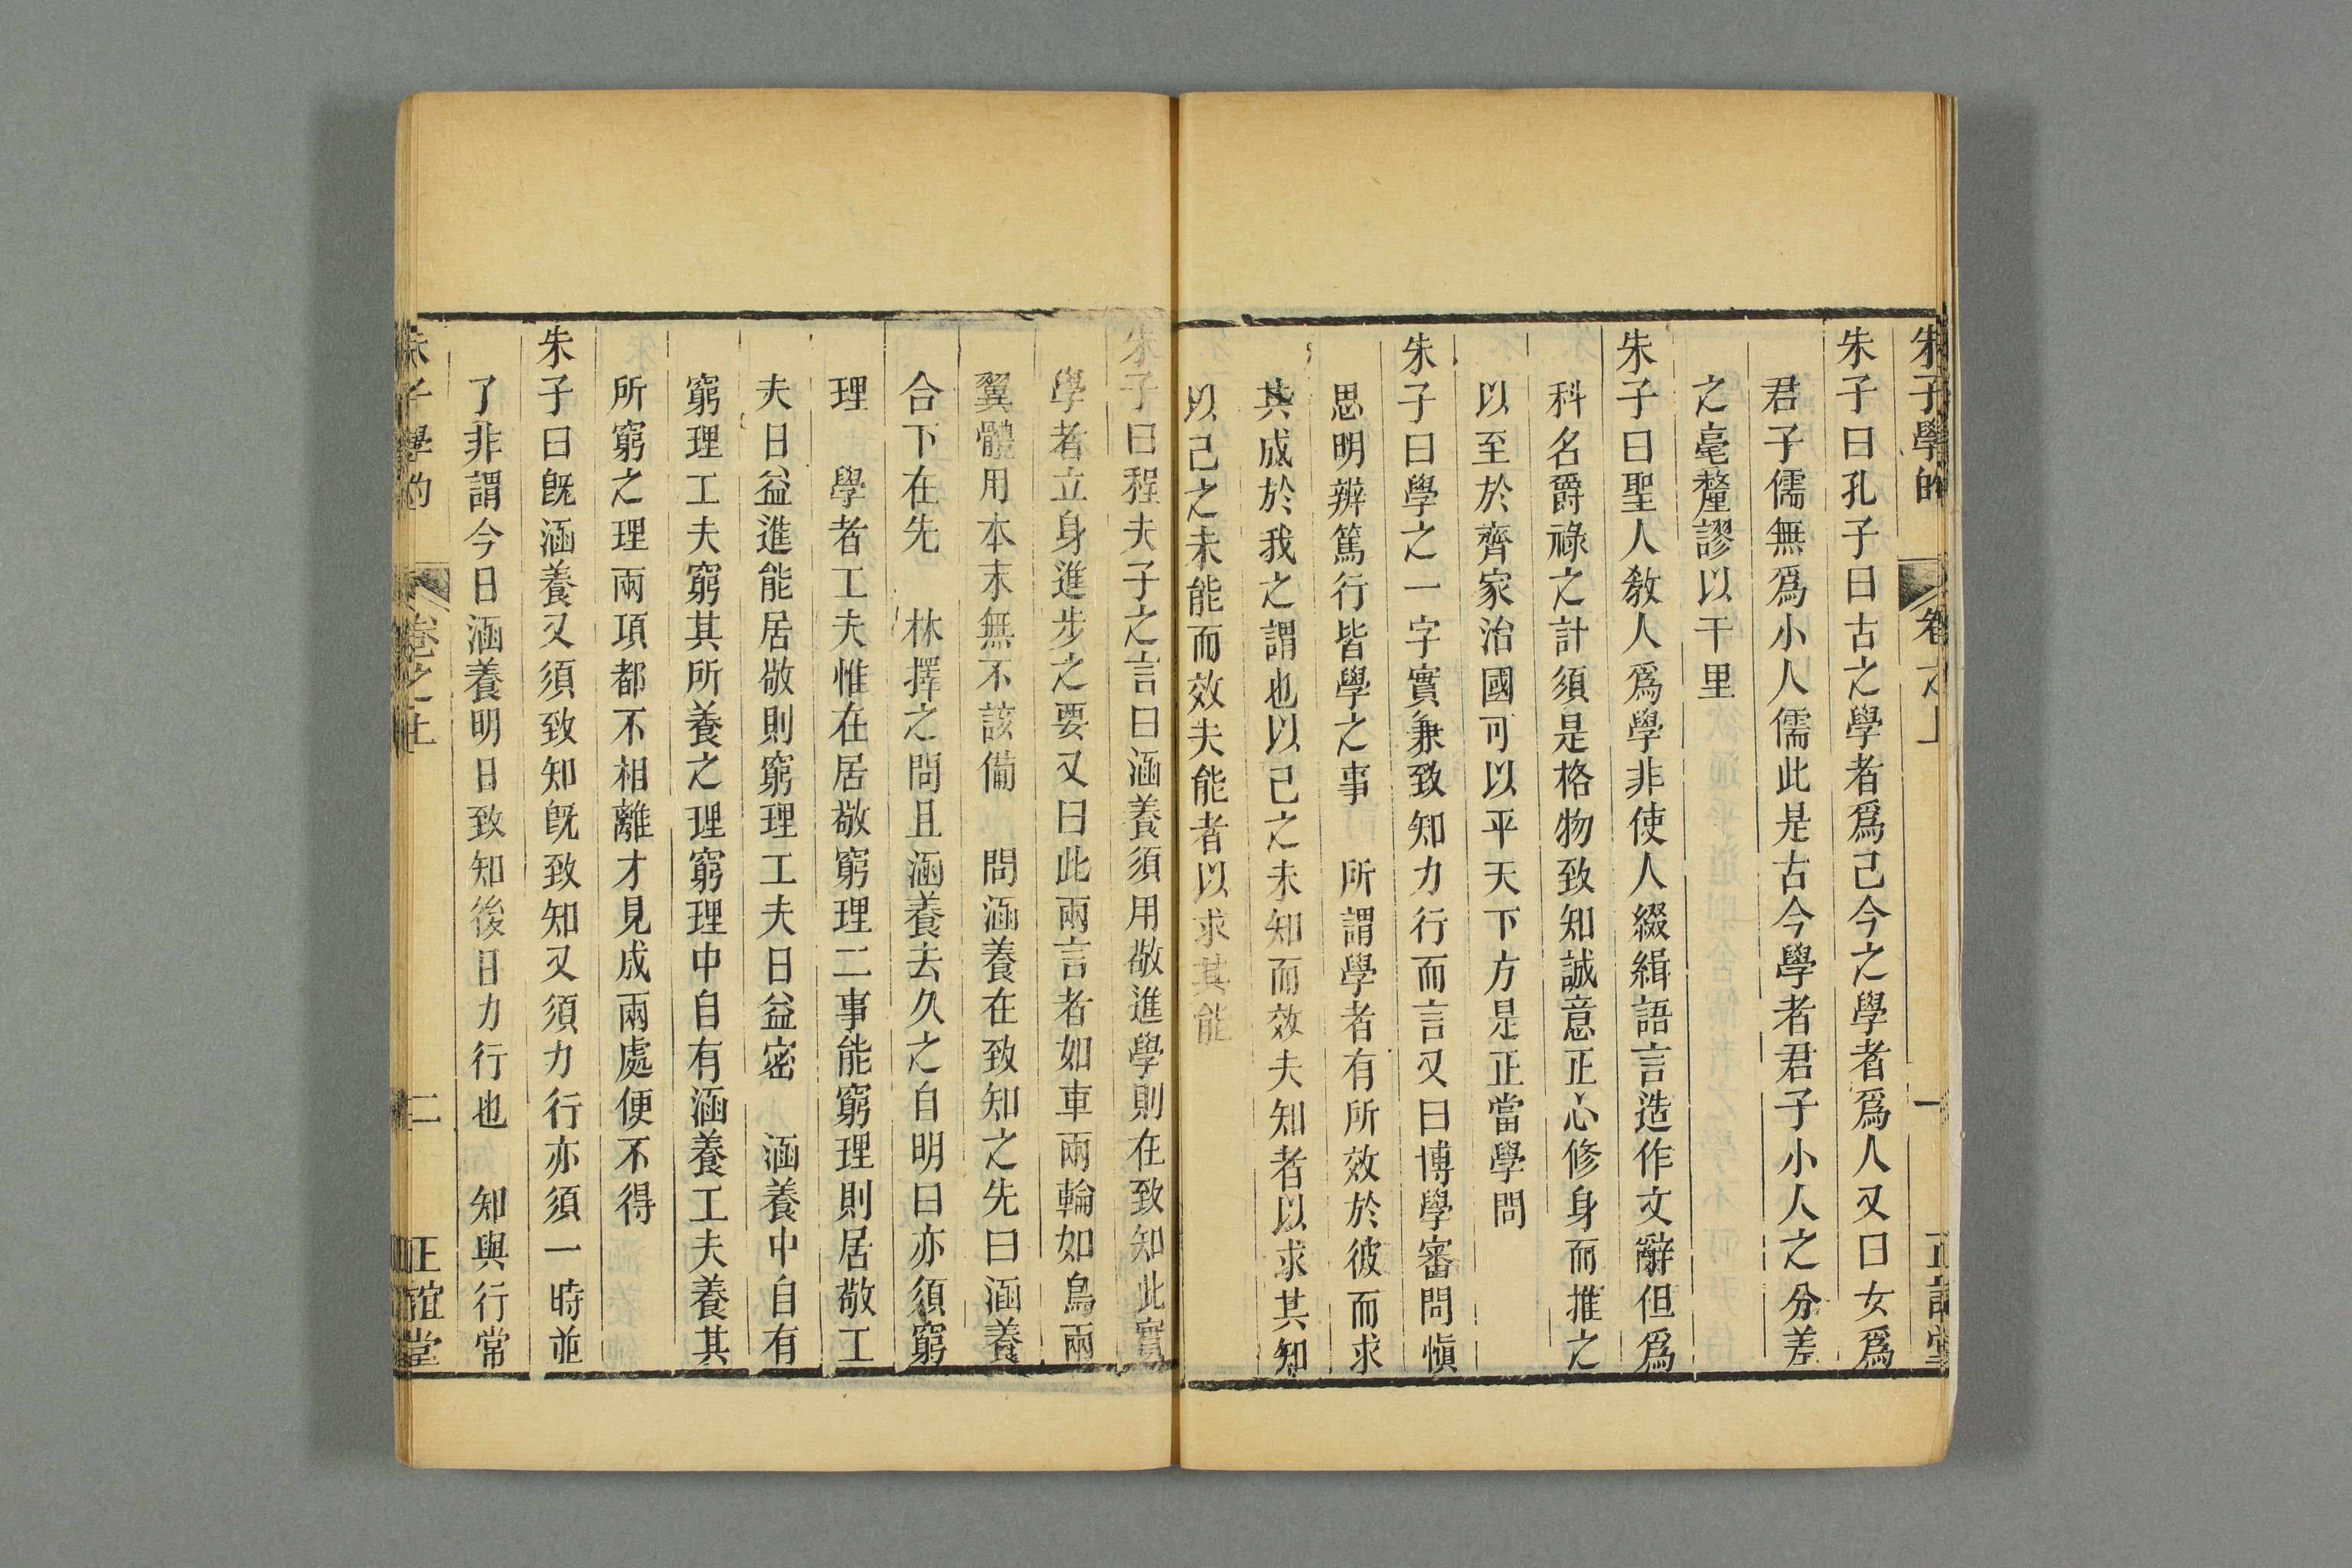 朱子學的　卷之上　一　正誼堂
朱子曰孔子曰古之學者爲己今之學者爲人又曰女爲
君子儒無爲小人儒此是古今學者君子小人之分差
之毫釐謬以千里
朱子曰聖人敎人爲學非使人綴緝語言造作文辭但爲
科名爵祿之計須是格物致知誠意正心修身而推之
以至於齊家治國可以平天下方是正當學問
朱子曰學之一字實兼致知力行而言又曰博學審問愼
思明辨篤行皆學之事　所謂學者有所效於彼而求
其成於我之謂也以己之未知而效夫知者以求其知
以己之未能而效夫能者以求其能
朱子曰程夫子之言曰涵養須用敬進學則在致知此實
學者立身進步之要又曰此兩言者如車兩輪如鳥兩
翼體用本末無不該備　問涵養在致知之先曰涵養
合下在先　林擇之問且涵養去久之自明曰亦須窮
理　學者工夫惟在居敬窮理二事能窮理則居敬工
夫日益進能居敬則窮理工夫日益密　涵養中自有
窮理工夫窮其所養之理窮理中自有涵養工夫養其
所窮之理兩項都不相離才見成兩處便不得
朱子曰旣涵養又須致知旣致知又須力行亦須一時並
了非謂今日涵養明日致知後日力行也　知與行常
朱子學的　卷之上　二　正誼堂